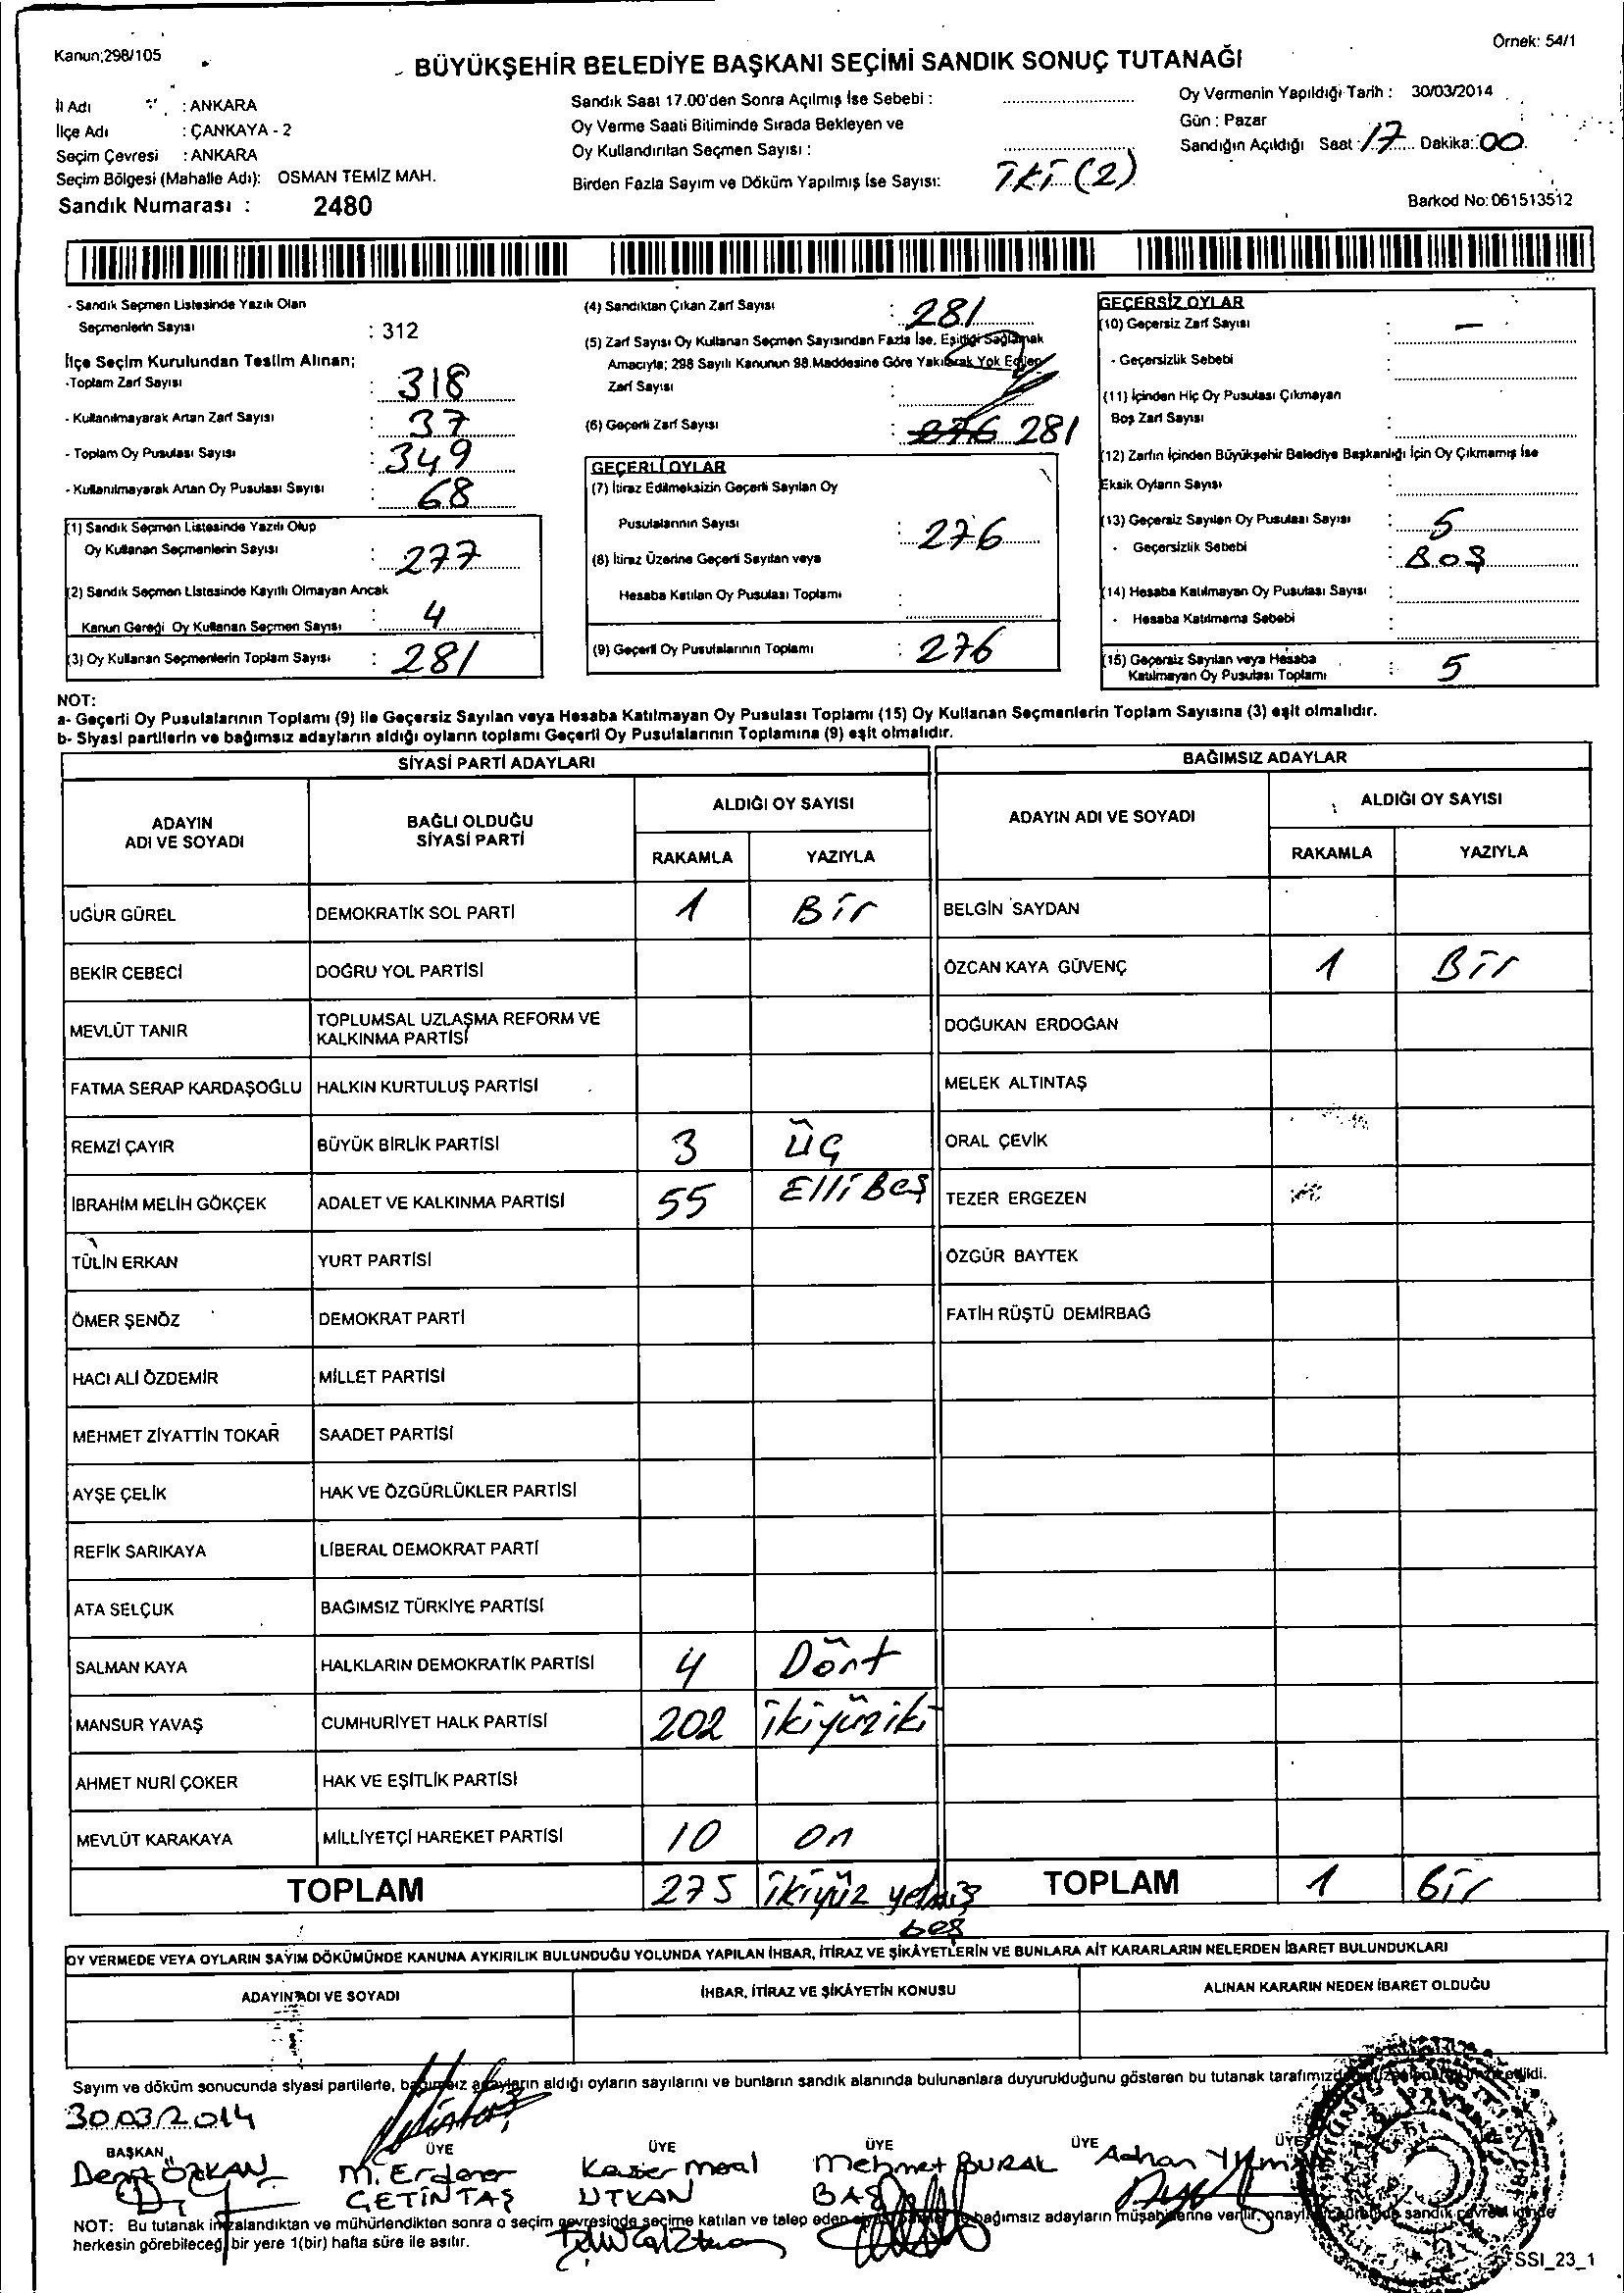 Kanun;298/105
Örnek: 54/1
BÜYÜKŞEHİR BELEDİYE BAŞKANI SEÇİMİ SANDIK SONUÇ TUTANAĞI
İl Adı : ANKARA
İlçe Adı : ÇANKAYA - 2
Seçim Çevresi : ANKARA
Seçim Bölgesi (Mahalle Adı): OSMAN TEMİZ MAH.
Sandık Numarası : 2480
Sandık Saat 17.00'den Sonra Açılmış İse Sebebi :
Oy Verme Saati Bitiminde Sırada Bekleyen ve
Oy Kullandırılan Seçmen Sayısı :
Birden Fazla Sayım ve Döküm Yapılmış İse Sayısı: İKİ (2)
Oy Vermenin Yapıldığı Tarih : 30/03/2014
Gün : Pazar
Sandığın Açıldığı Saat : 17 Dakika: 00
Barkod No: 061513512
- Sandık Seçmen Listesinde Yazılı Olan
Seçmenlerin Sayısı : 312
İlçe Seçim Kurulundan Teslim Alınan;
-Toplam Zarf Sayısı : 318
- Kullanılmayarak Artan Zarf Sayısı : 37
- Toplam Oy Pusulası Sayısı : 349
- Kullanılmayarak Artan Oy Pusulası Sayısı : 68
(1) Sandık Seçmen Listesinde Yazılı Olup
Oy Kullanan Seçmenlerin Sayısı : 277
(2) Sandık Seçmen Listesinde Kayıtlı Olmayan Ancak
Kanun Gereği Oy Kullanan Seçmen Sayısı : 4
(3) Oy Kullanan Seçmenlerin Toplam Sayısı : 281
(4) Sandıktan Çıkan Zarf Sayısı : 281
(5) Zarf Sayısı Oy Kullanan Seçmen Sayısından Fazla İse, Eşitliği Sağlamak
Amacıyla; 298 Sayılı Kanunun 98.Maddesine Göre Yakılarak Yok Edilen
Zarf Sayısı :
(6) Geçerli Zarf Sayısı : 276 281
GEÇERLİ OYLAR
(7) İtiraz Edilmeksizin Geçerli Sayılan Oy
Pusulalarının Sayısı : 276
(8) İtiraz Üzerine Geçerli Sayılan veya
Hesaba Katılan Oy Pusulası Toplamı :
(9) Geçerli Oy Pusulalarının Toplamı : 276
GEÇERSİZ OYLAR
(10) Geçersiz Zarf Sayısı : -
- Geçersizlik Sebebi :
(11) İçinden Hiç Oy Pusulası Çıkmayan
Boş Zarf Sayısı :
(12) Zarfın İçinden Büyükşehir Belediye Başkanlığı İçin Oy Çıkmamış İse
Eksik Oyların Sayısı :
(13) Geçersiz Sayılan Oy Pusulası Sayısı : 5
- Geçersizlik Sebebi : BOŞ
(14) Hesaba Katılmayan Oy Pusulası Sayısı :
- Hesaba Katılmama Sebebi :
(15) Geçersiz Sayılan veya Hesaba
Katılmayan Oy Pusulası Toplamı : 5
NOT:
a- Geçerli Oy Pusulalarının Toplamı (9) ile Geçersiz Sayılan veya Hesaba Katılmayan Oy Pusulası Toplamı (15) Oy Kullanan Seçmenlerin Toplam Sayısına (3) eşit olmalıdır.
b- Siyasi partilerin ve bağımsız adayların aldığı oyların toplamı Geçerli Oy Pusulalarının Toplamına (9) eşit olmalıdır.
SİYASİ PARTİ ADAYLARI
BAĞIMSIZ ADAYLAR
ADAYIN ADI VE SOYADI
BAĞLI OLDUĞU SİYASİ PARTİ
ALDIĞI OY SAYISI
RAKAMLA YAZIYLA
ADAYIN ADI VE SOYADI
ALDIĞI OY SAYISI
RAKAMLA YAZIYLA
UĞUR GÜREL DEMOKRATİK SOL PARTİ 1 Bir BELGİN SAYDAN
BEKİR CEBECİ DOĞRU YOL PARTİSİ ÖZCAN KAYA GÜVENÇ 1 Bir
MEVLÜT TANIR TOPLUMSAL UZLAŞMA REFORM VE KALKINMA PARTİSİ DOĞUKAN ERDOĞAN
FATMA SERAP KARDAŞOĞLU HALKIN KURTULUŞ PARTİSİ MELEK ALTINTAŞ
REMZİ ÇAYIR BÜYÜK BİRLİK PARTİSİ 3 üç ORAL ÇEVİK
İBRAHİM MELİH GÖKÇEK ADALET VE KALKINMA PARTİSİ 55 Elli Beş TEZER ERGEZEN
TÜLİN ERKAN YURT PARTİSİ ÖZGÜR BAYTEK
ÖMER ŞENÖZ DEMOKRAT PARTİ FATİH RÜŞTÜ DEMİRBAĞ
HACI ALİ ÖZDEMİR MİLLET PARTİSİ
MEHMET ZİYATTİN TOKAR SAADET PARTİSİ
AYŞE ÇELİK HAK VE ÖZGÜRLÜKLER PARTİSİ
REFİK SARIKAYA LİBERAL DEMOKRAT PARTİ
ATA SELÇUK BAĞIMSIZ TÜRKİYE PARTİSİ
SALMAN KAYA HALKLARIN DEMOKRATİK PARTİSİ 4 Dört
MANSUR YAVAŞ CUMHURİYET HALK PARTİSİ 202 ikiyüziki
AHMET NURİ ÇOKER HAK VE EŞİTLİK PARTİSİ
MEVLÜT KARAKAYA MİLLİYETÇİ HAREKET PARTİSİ 10 On
TOPLAM 275 ikiyüz yetmiş beş TOPLAM 1 Bir
OY VERMEDE VEYA OYLARIN SAYIM DÖKÜMÜNDE KANUNA AYKIRILIK BULUNDUĞU YOLUNDA YAPILAN İHBAR, İTİRAZ VE ŞİKÂYETLERİN VE BUNLARA AİT KARARLARIN NELERDEN İBARET BULUNDUKLARI
ADAYIN ADI VE SOYADI İHBAR, İTİRAZ VE ŞİKÂYETİN KONUSU ALINAN KARARIN NEDEN İBARET OLDUĞU
Sayım ve döküm sonucunda siyasi partilerle, bağımsız adayların aldığı oyların sayılarını ve bunların sandık alanında bulunanlara duyurulduğunu gösteren bu tutanak
30.03.2014
BAŞKAN ÜYE ÜYE ÜYE ÜYE ÜYE
Deniz ÖZKAN M. Erdener Mehmet BURAL Adnan
ÇETİNTAŞ UTKAN BAŞ
NOT: Bu tutanak imzalandıktan ve mühürlendikten sonra o seçim çevresinde seçime katılan ve talep eden bağımsız adayların müşahitlerine verilir,
herkesin görebileceği bir yere 1(bir) hafta süre ile asılır.
SSI_23_1